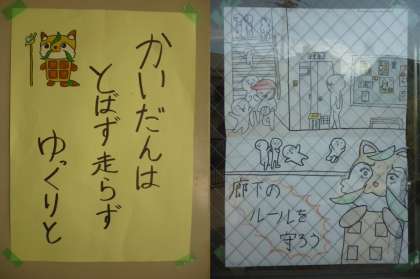 かいだんは
とばず走らず
ゆっくりと
廊下の
ルールを
守ろう